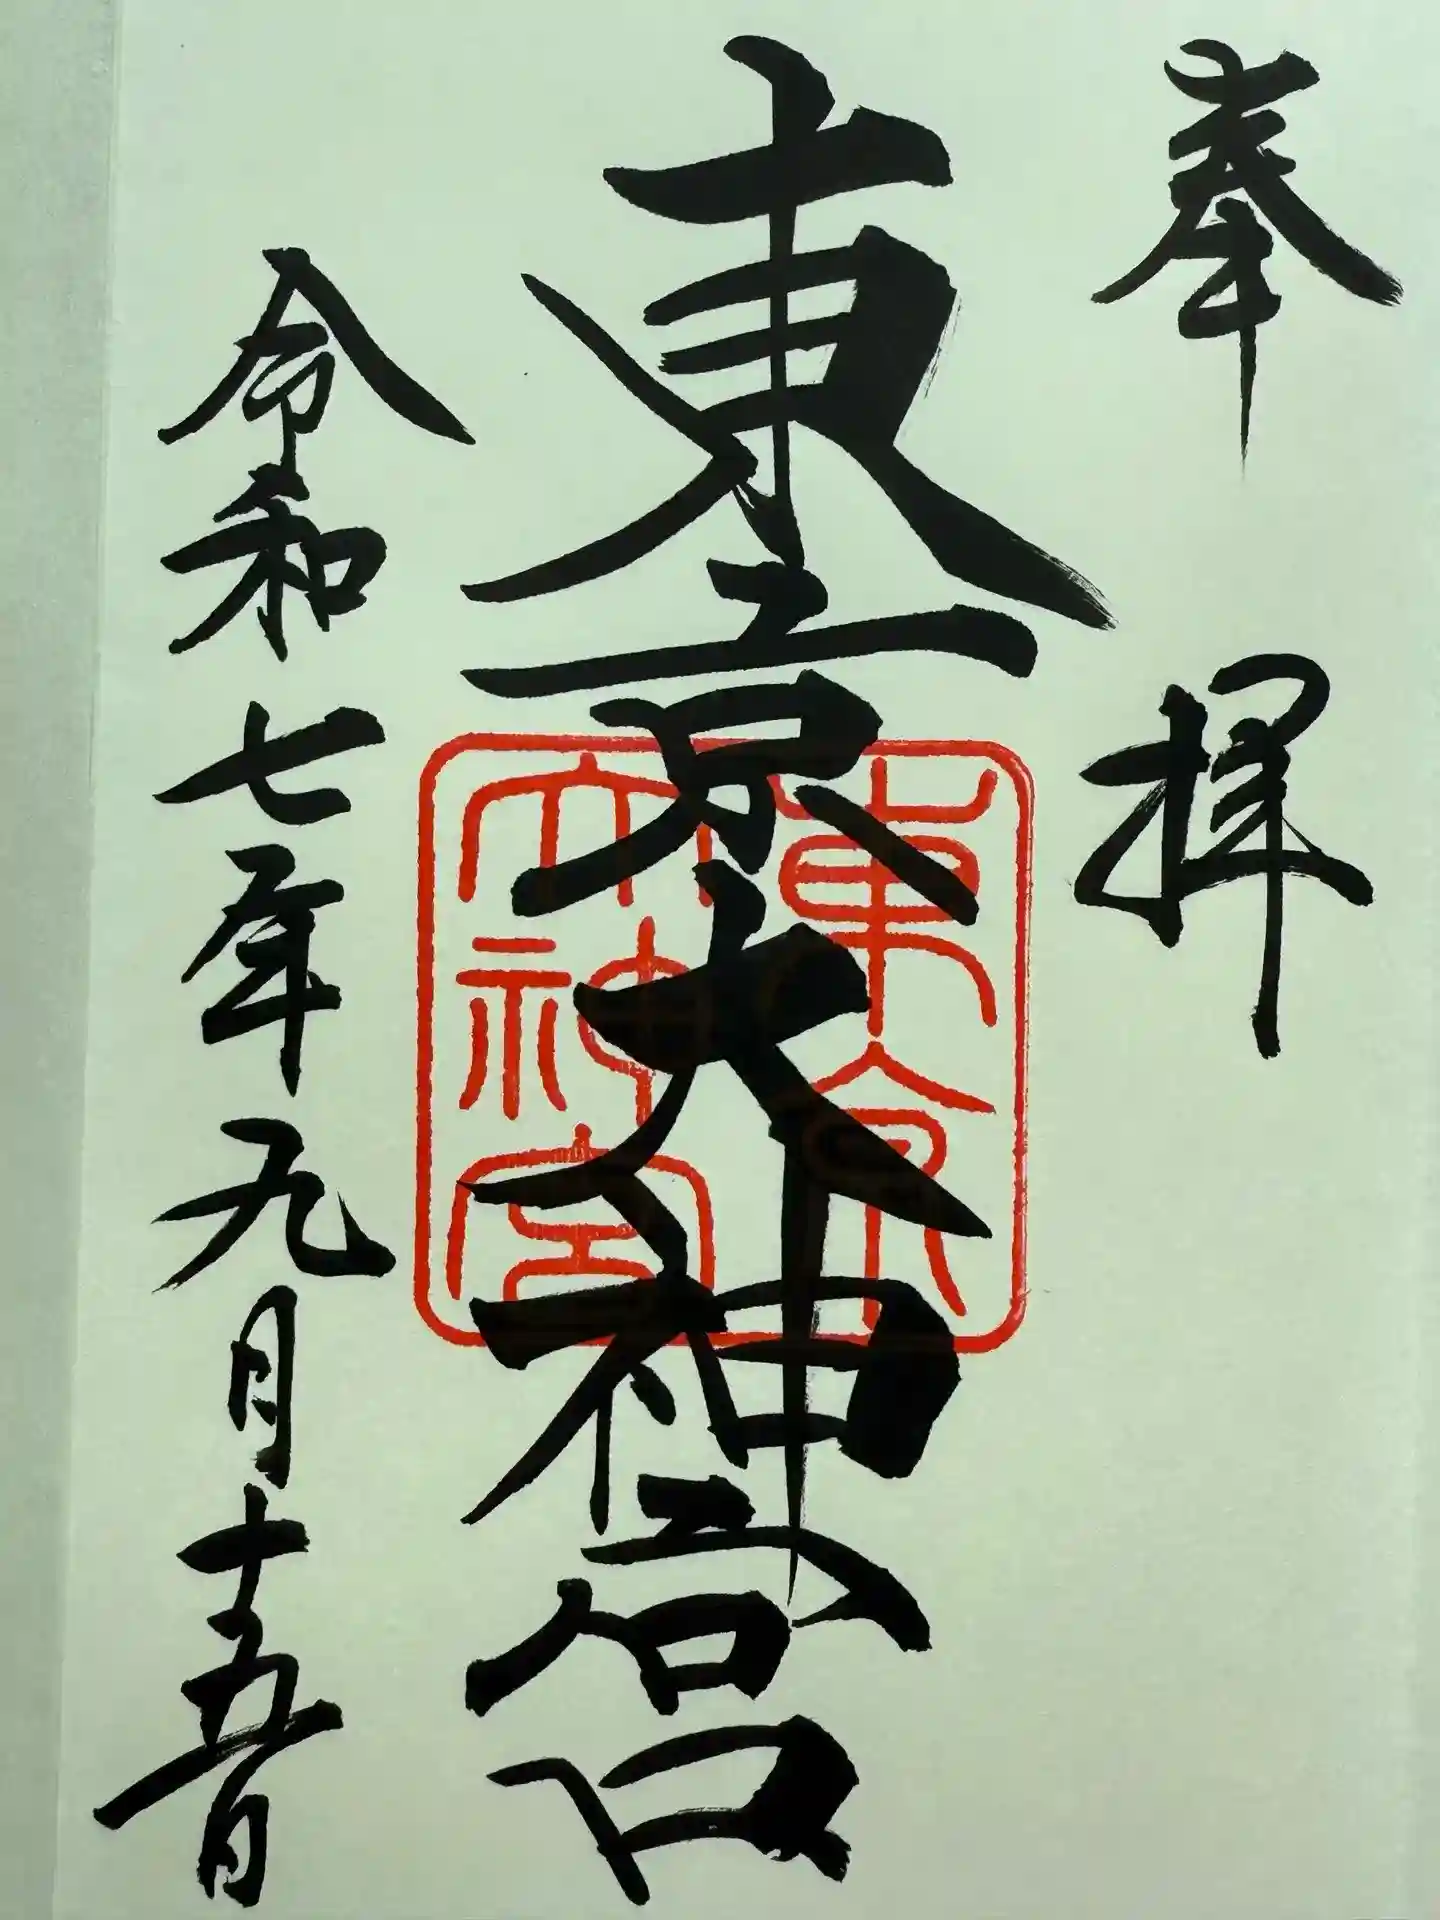 奉拝
東京大神宮
東京
大神宮
令和七年九月十五日